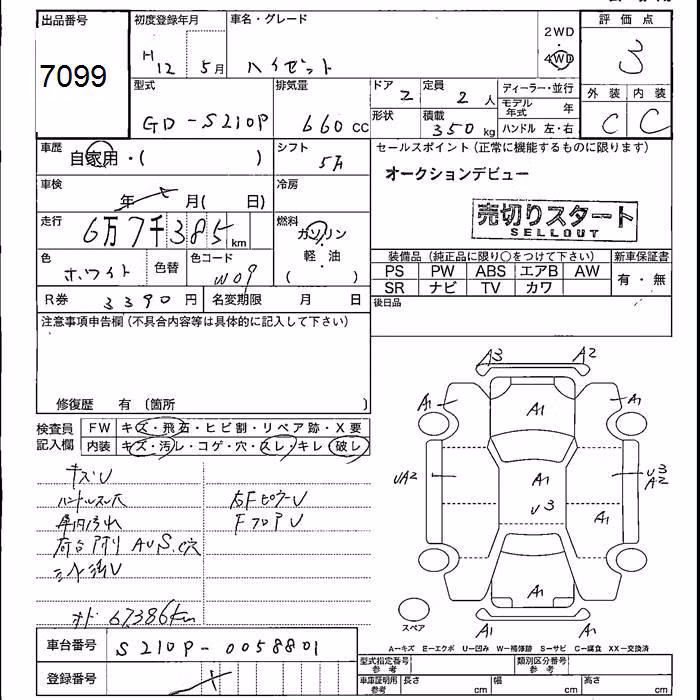 出品番号
7099
初度登録年月
H12 5月
車名・グレード
ハイゼット
2WD
4WD
評価点
3
外装 内装
C C
型式
GD-S210P
排気量
660cc
ドア 2
形状
定員 2人
積載 350kg
ディーラー・並行
モデル年式 年
ハンドル 左・右
車歴
自家用・( )
シフト
5A
セールスポイント(正常に機能するものに限ります)
オークションデビュー
売切りスタート
SELLOUT
車検
年 月( 日)
冷房
走行
6万7千385km
燃料
ガソリン
・軽油
( )
色
ホワイト
色替
色コード
W09
装備品(純正品に限り○をつけて下さい)
新車保証書
PS PW ABS エアB AW
SR ナビ TV カワ
有・無
R券 3390円
名変期限 月 日
後日品
注意事項申告欄(不具合内容等は具体的に記入して下さい)
修復歴 有 〔箇所 〕
検査員記入欄
FW キズ・飛石・ヒビ割・リペア跡・X要
内装 キズ・汚レ・コゲ・穴・スレ・キレ・破レ
キズU
ハンドルスレ大
車内汚れ
右FピラーU
FフロアU
オド 67386km
A3 A2
A1 A1 A1
UA2 A1 U3 A2
U3 A1
A1
A1 A1
スペア
A-キズ E-エクボ U-凹み W-補修跡 S-サビ C-腐食 XX-交換済
車台番号 S210P-0058801
登録番号
型式指定番号 参考
類別区分番号 参考
車庫証明用 参考
長さ cm 幅 cm 高さ cm